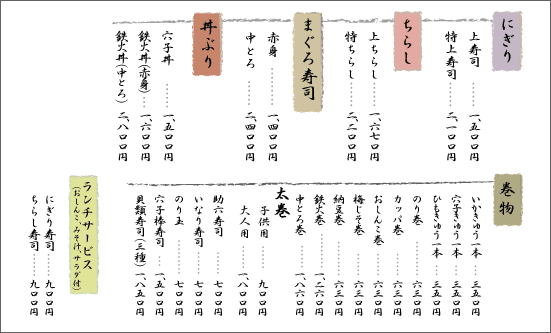 にぎり
上寿司……一、五〇〇円
特上寿司……二、一〇〇円
ちらし
上ちらし……一、六七〇円
特ちらし……二、二〇〇円
まぐろ寿司
赤身……一、四〇〇円
中とろ……二、四〇〇円
丼ぶり
穴子丼……一、五〇〇円
鉄火丼(赤身)……一、六〇〇円
鉄火丼(中とろ)……二、八〇〇円
巻物
いかきゅう一本……三五〇円
穴子きゅう一本……三五〇円
ひもきゅう一本……三五〇円
のり巻……六三〇円
カッパ巻……六三〇円
おしんこ巻……六三〇円
梅じそ巻……六三〇円
納豆巻……六三〇円
鉄火巻……一、二六〇円
中とろ巻……一、八六〇円
太巻
子供用……九〇〇円
大人用……一、八〇〇円
助六寿司……七〇〇円
いなり寿司……七〇〇円
のり玉……七〇〇円
穴子棒寿司……一、五〇〇円
貝類寿司(三種)一、八五〇円
ランチサービス
(おしんこ、みそ汁、サラダ付)
にぎり寿司……九〇〇円
ちらし寿司……九〇〇円